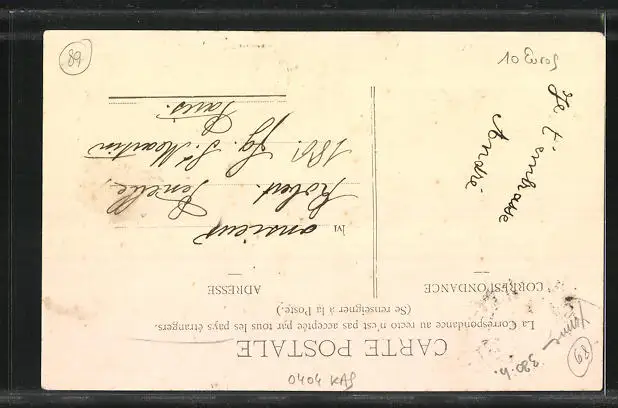 CARTE POSTALE
La Correspondance au recto n'est pas acceptée par tous les pays étrangers.
(Se renseigner à la Poste.)
CORRESPONDANCE
ADRESSE
Je t'embrasse
André
Monsieur
Robert.
186. Fg. St Martin
Paris.
10 Euros
89
89
320. h.
0404 KAS